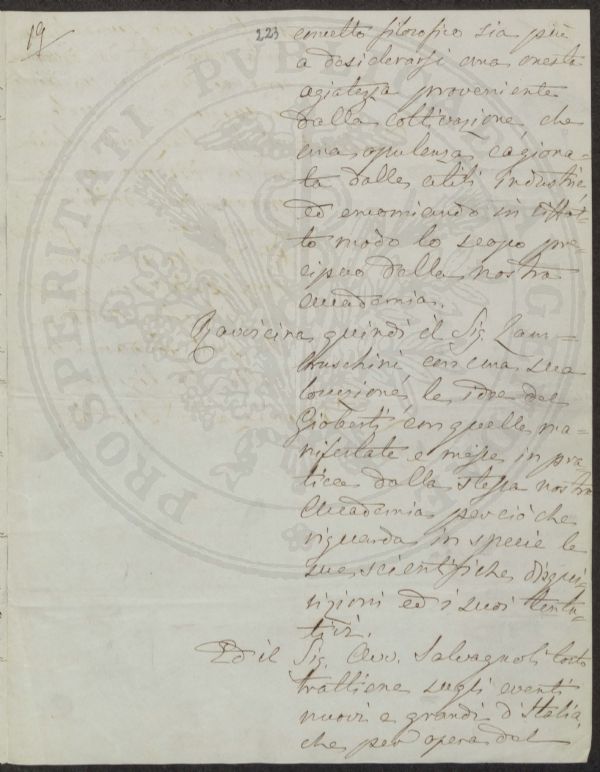 19
223
concetto filosofico sia più
a desiderarsi una onesta
agiatezza proveniente
dalla coltivazione, che
una opulenza cagiona-
ta dalle utili industrie,
ed encomiando in siffat-
to modo lo scopo pre-
cipuo della nostra
Accademia.
Ravvicina quindi il Sig. Lam-
bruschini con una sua
locuzione, le idee del
Gioberti con quelle ma-
nifestate e messe in pra-
tica dalla stessa nostra
Accademia perciò che
riguarda in specie le
sue scientifiche disqui-
sizioni ed i suoi tenta-
tivi.
Ed il Sig. Avv. Salvagnoli tosto
trattiene sugli eventi
nuovi e grandi d'Italia,
che per opera del
PROSPERITATI PUBLICAE